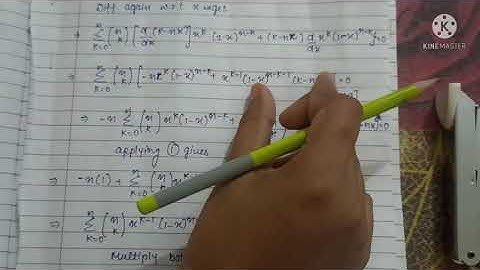 Diff again w.r.t x we get
⇒ Σ_{k=0}^{n} (n k) [d/dx (k-nx)] x^k (1-x)^{n-k} + (k-nx) d/dx x^k (1-x)^{n-k}] = 0
⇒ Σ_{k=0}^{n} (n k) [-n x^k (1-x)^{n-k} + x^{k-1} (1-x)^{n-k-1} (k-n = 0
⇒ -n Σ_{k=0}^{n} (n k) x^k (1-x)^{n-k} +
applying ① gives
⇒ -n(1) + Σ_{k=0}^{n} (n k)
⇒ Σ_{k=0}^{n} (n k) x^{k-1} (1-x)
Multiply
KINEMASTER